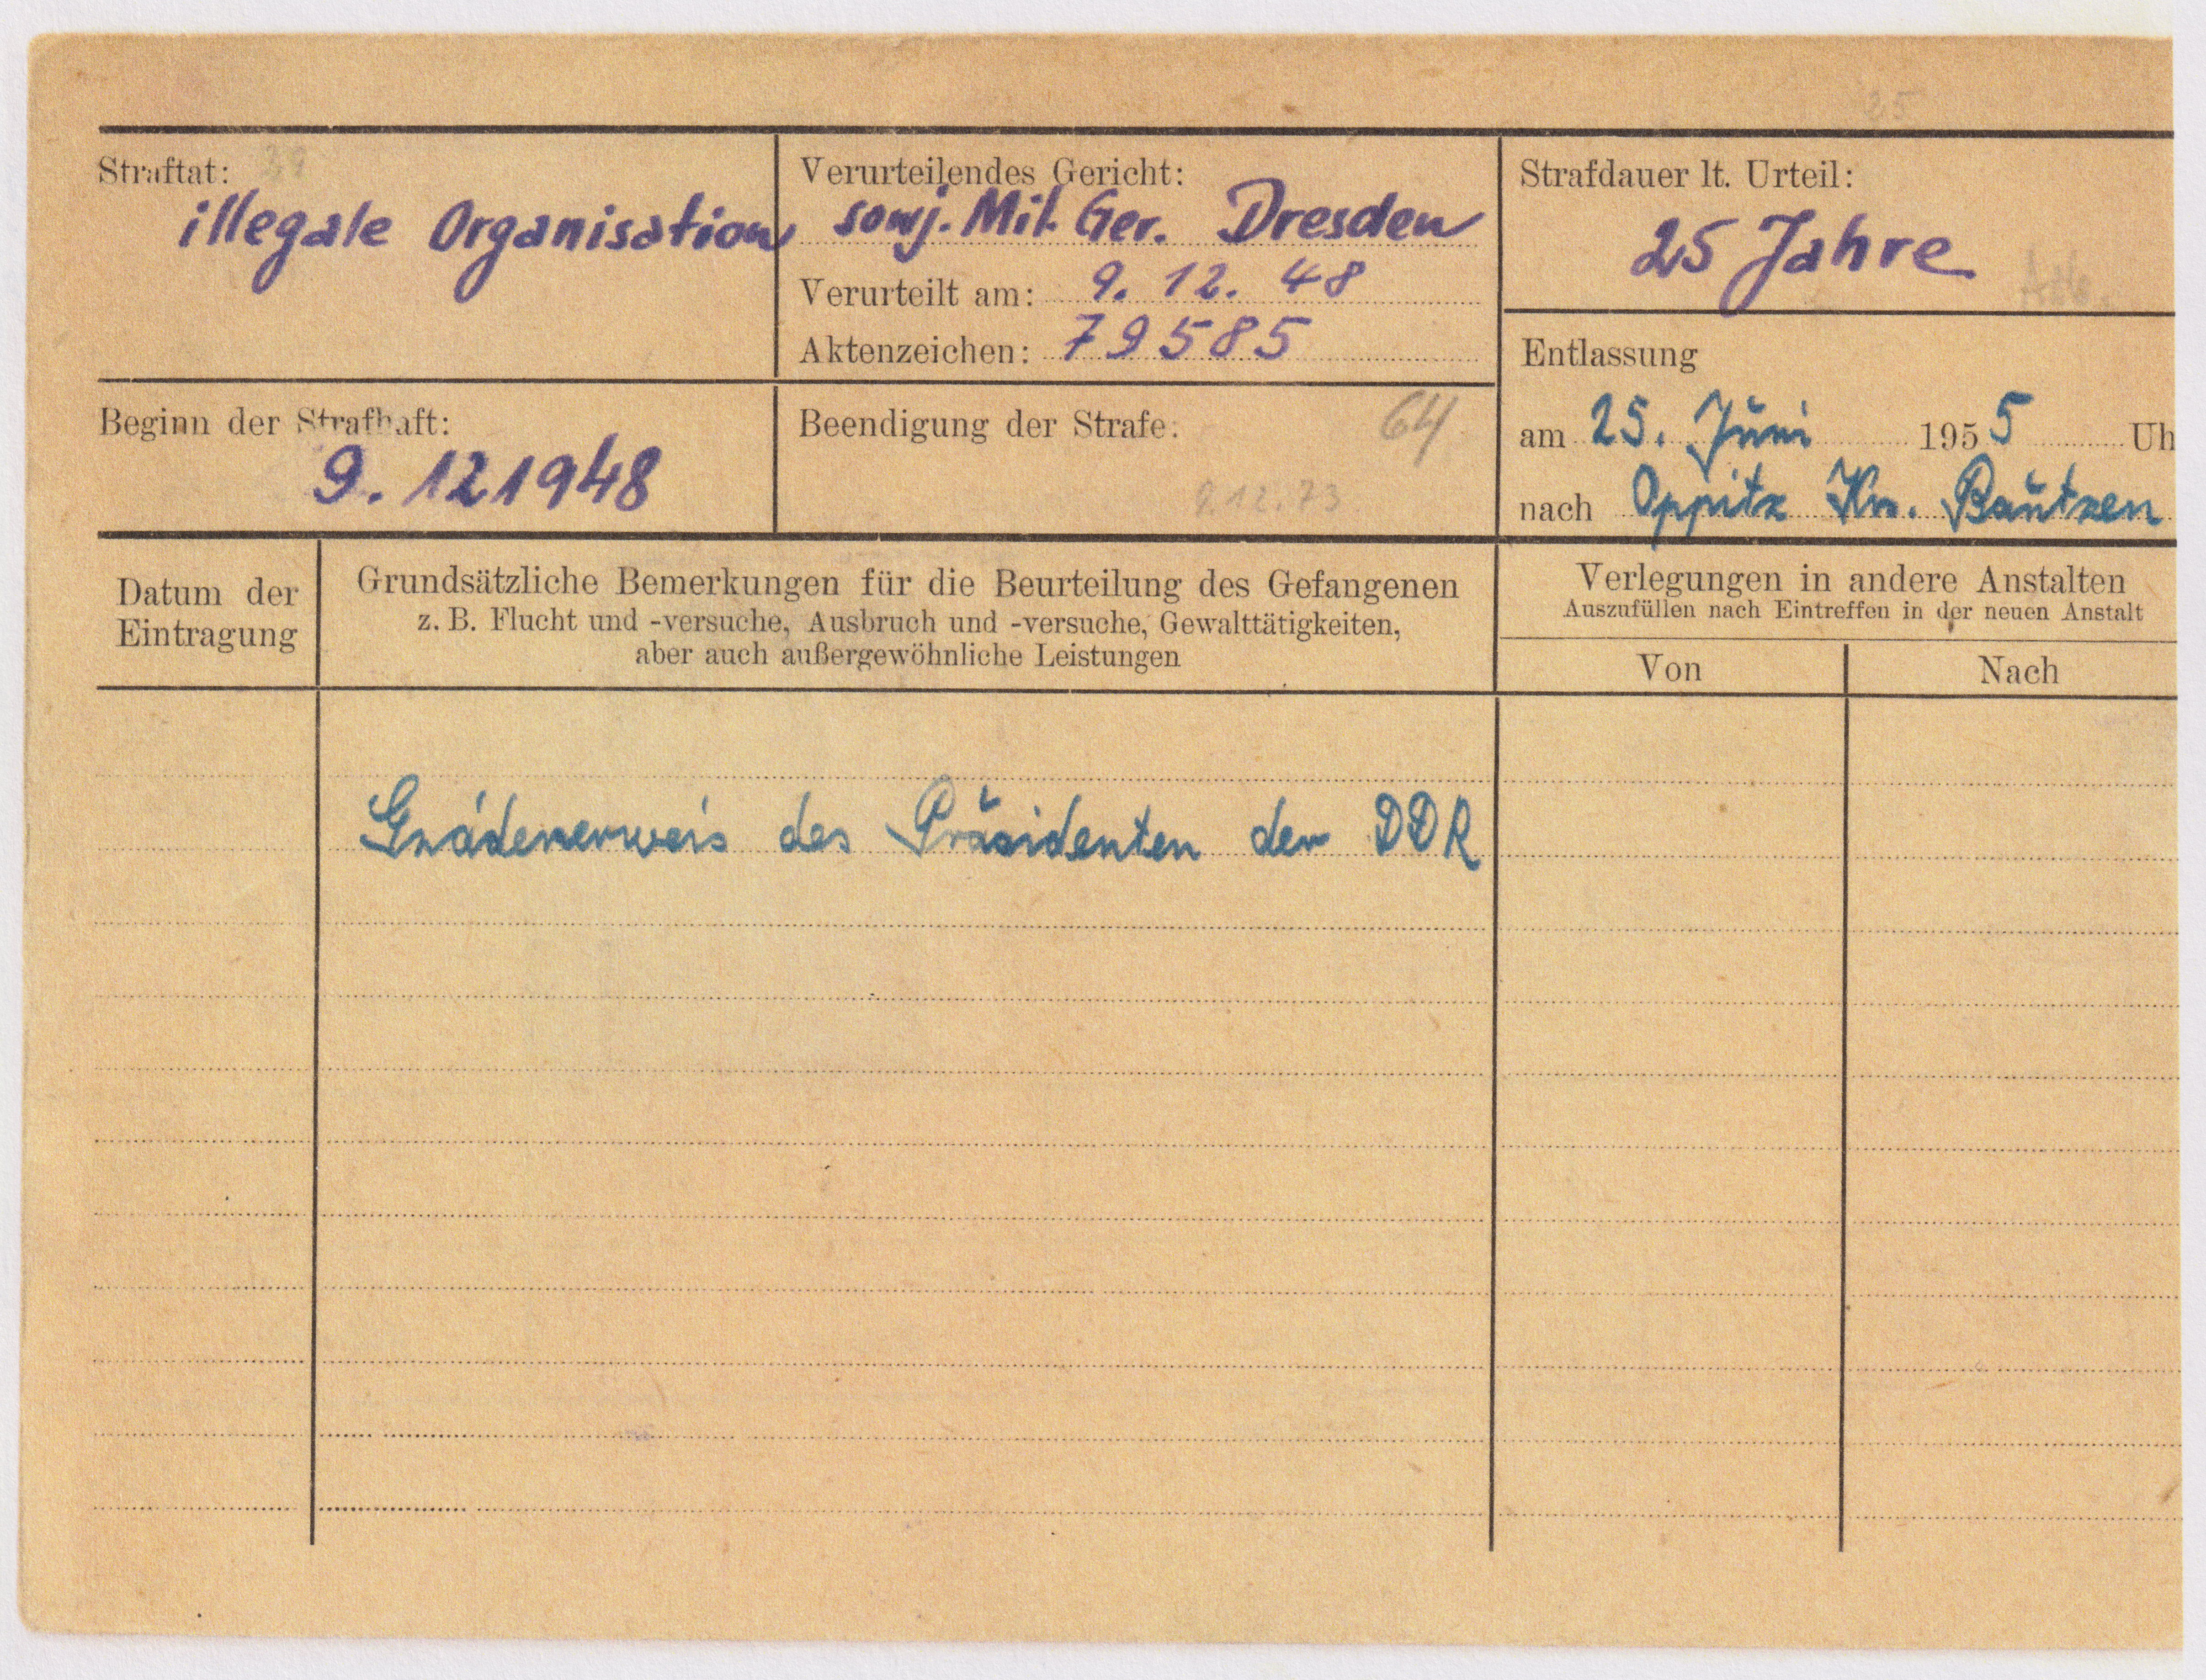 Straftat:
illegale Organisation
Verurteilendes Gericht:
sowj. Mil. Ger. Dresden
Verurteilt am: 9. 12. 48
Aktenzeichen: 79585
Strafdauer lt. Urteil:
25 Jahre
Beginn der Strafhaft:
9. 12 1948
Beendigung der Strafe:
64
9.12.73
Entlassung
am 25. Juni 1955 Uh
nach Oppitz Kr. Bautzen
Datum der
Eintragung
Grundsätzliche Bemerkungen für die Beurteilung des Gefangenen
z. B. Flucht und -versuche, Ausbruch und -versuche, Gewalttätigkeiten,
aber auch außergewöhnliche Leistungen
Verlegungen in andere Anstalten
Auszufüllen nach Eintreffen in der neuen Anstalt
Von
Nach
Gnadenerweis des Präsidenten der DDR